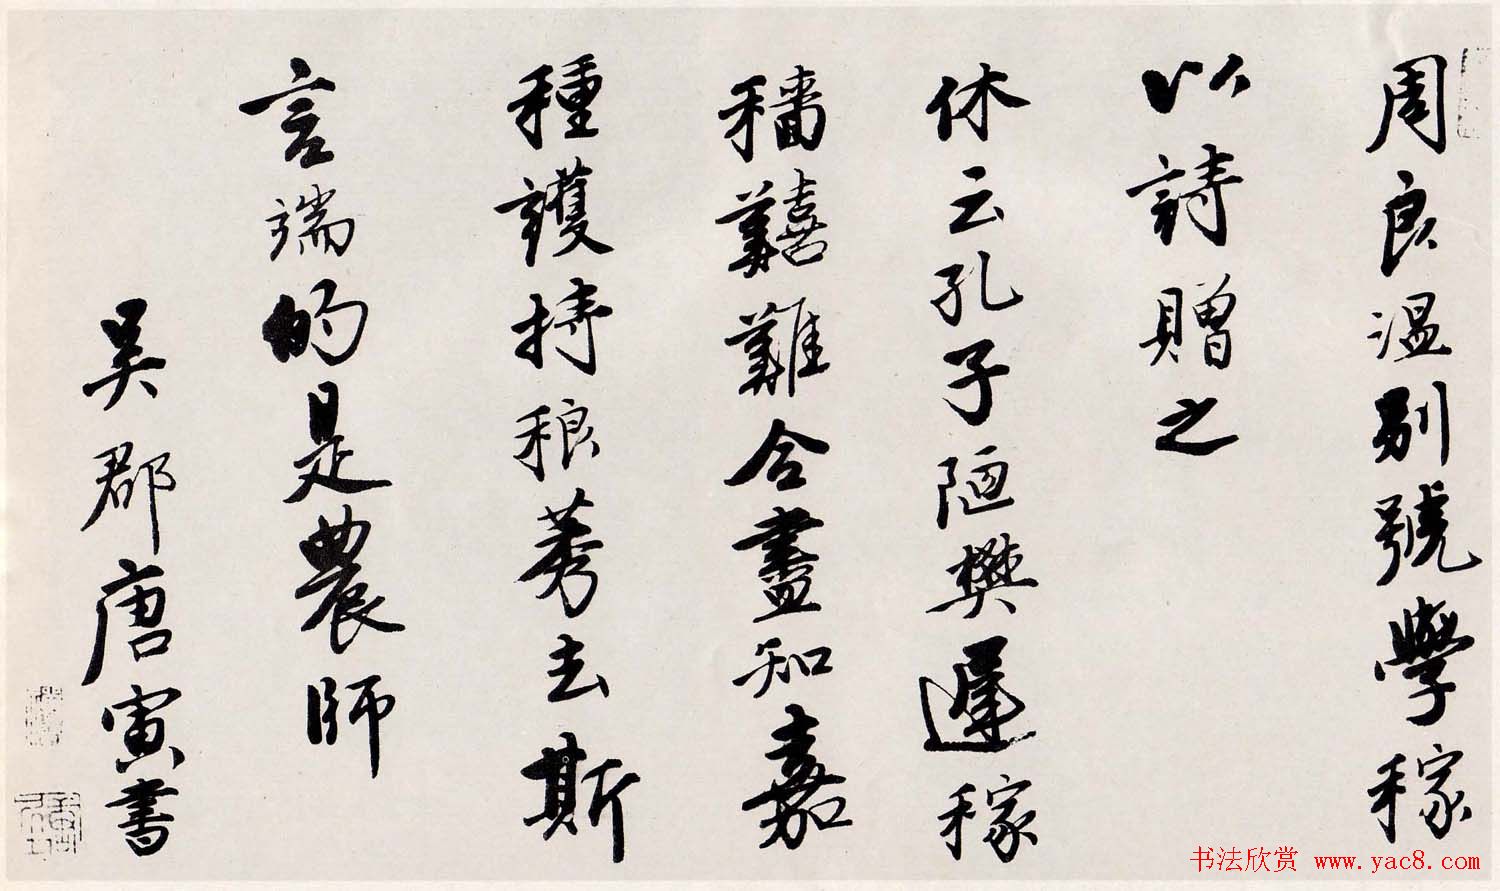 周良温别號學稼
以詩贈之
休云孔子陋樊遲稼
穡囏難合盡知嘉
種護持稂莠去斯
言端的是農師
吳郡唐寅書
书法欣赏 www.yac8.com